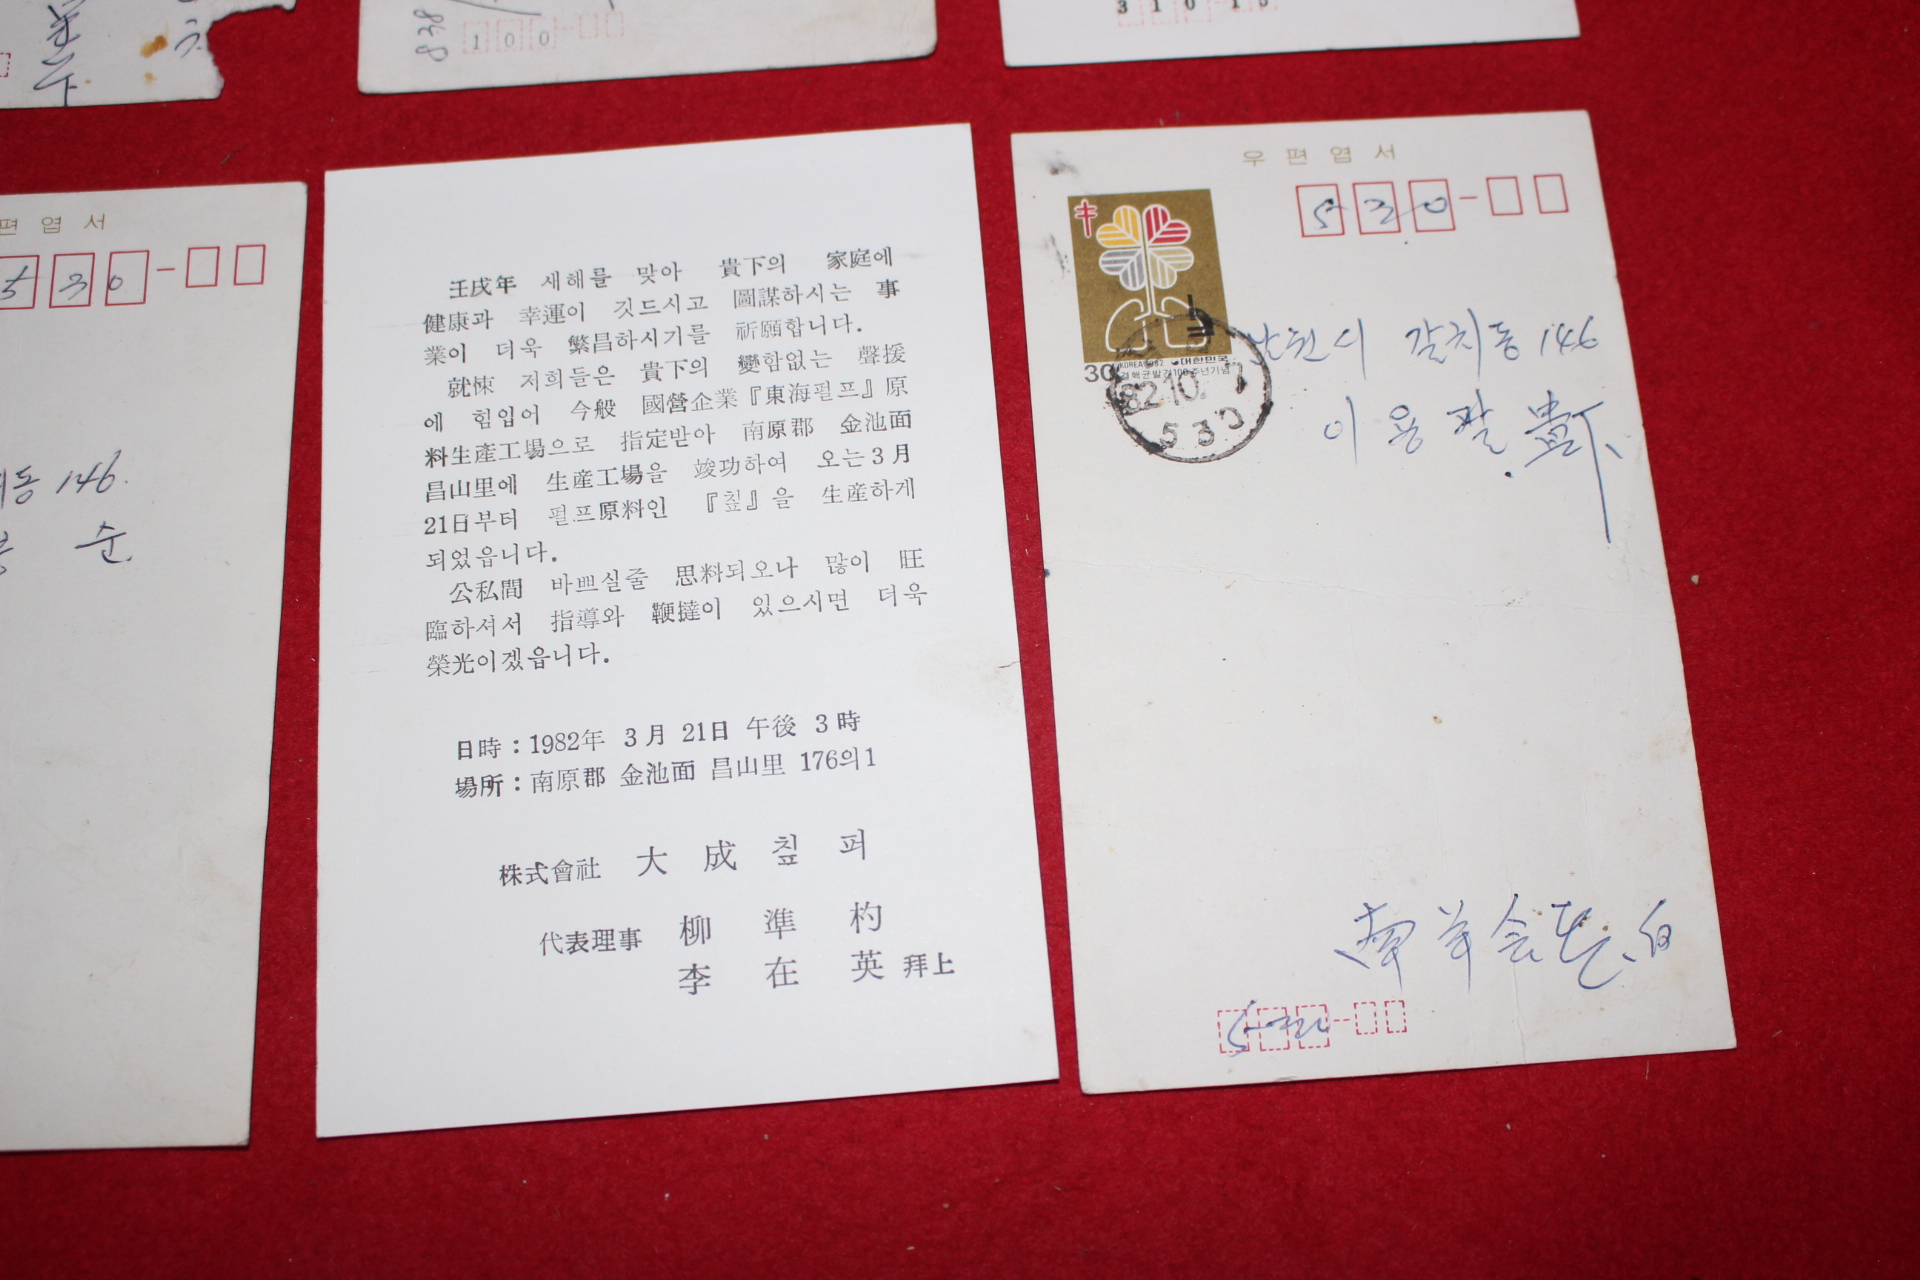 100
310-15
편엽서
530
동 146.
순
壬戌年 새해를 맞아 貴下의 家庭에
健康과 幸運이 깃드시고 圖謀하시는 事
業이 더욱 繁昌하시기를 祈願합니다.
就悚 저희들은 貴下의 變함없는 聲援
에 힘입어 今般 國營企業『東海펄프』原
料生產工場으로 指定받아 南原郡 金池面
昌山里에 生産工場을 竣功하여 오는 3月
21日부터 펄프原料인 『칲』을 生産하게
되었읍니다.
公私間 바쁘실줄 思料되오나 많이 旺
臨하셔서 指導와 鞭撻이 있으시면 더욱
榮光이겠읍니다.
日時 : 1982年 3月 21日 午後 3時
場所 : 南原郡 金池面 昌山里 176의1
株式會社 大成칲퍼
代表理事 柳準杓
李在英 拜上
우편엽서
530
30
KOREA 1982 대한민국
결핵균발견100주년기념
82.10.7
530
남원시 갈치동 146
이용팔 貴下
白